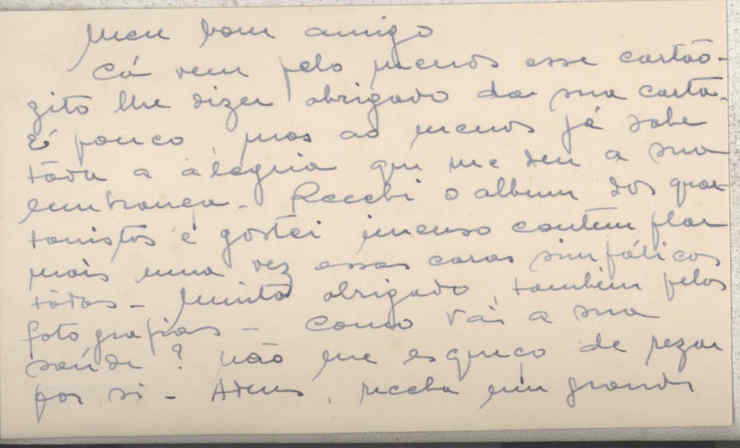 Meu bom amigo
Cá vem pelo menos esse cartão-
zito lhe dizer obrigado da sua carta.
É pouco, mas ao menos já sabe
tôda a alegria que me deu a sua
lembrança. Recebi o album dos quar-
tanistas e gostei imenso contemplar
mais uma vez essas caras simpáticas
tôdas - Muito obrigado, também pelas
fotografias - Como vai a sua
saúde? Não me esqueço de rezar
por si - Adeus, receba um grande